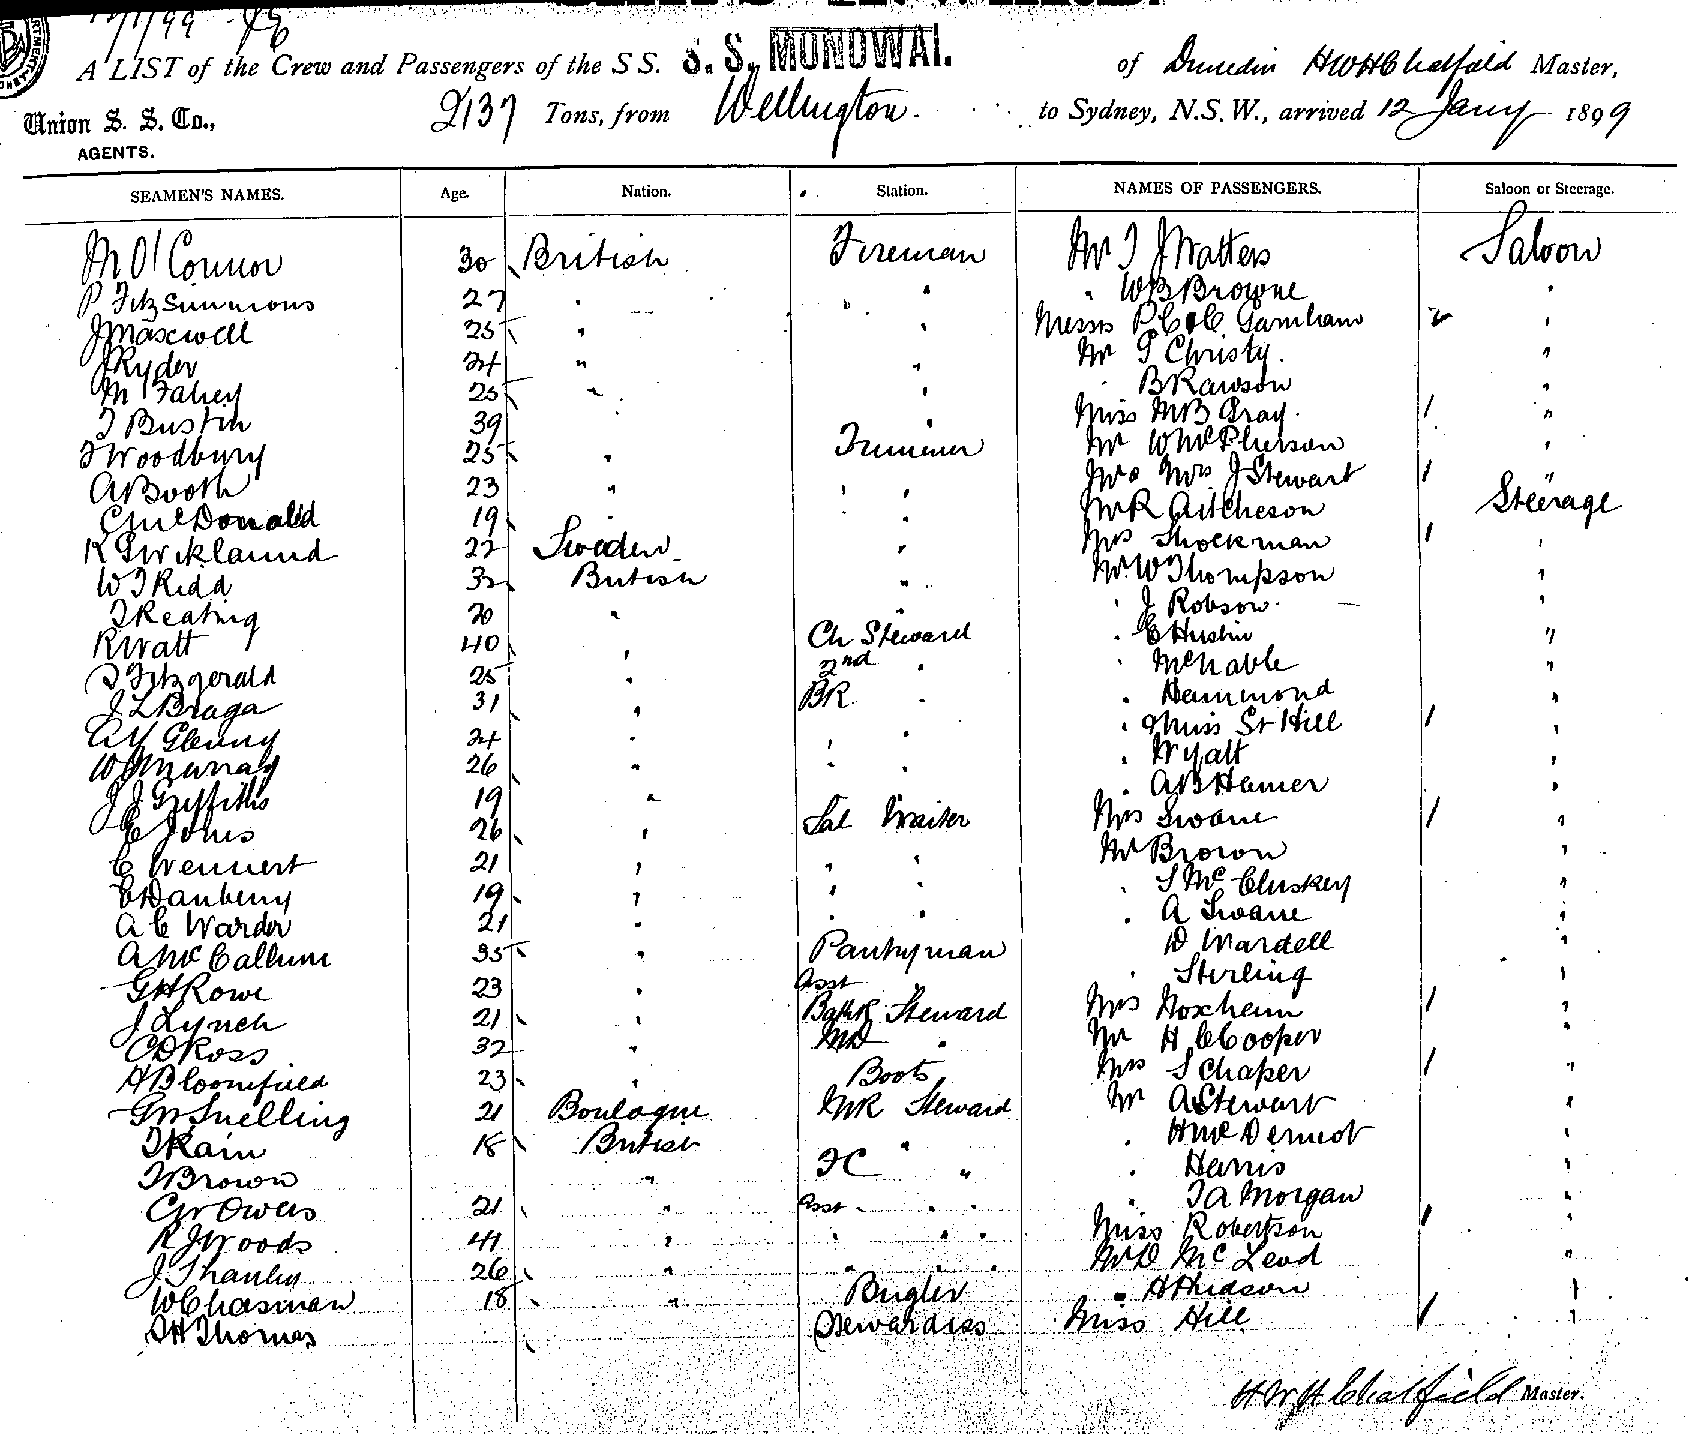 12/1/99
A LIST of the Crew and Passengers of the S S. S. S. MONOWAI. of Dunedin HWHChatfield Master,
Union S. S. Co., 2137 Tons, from Wellington. to Sydney, N.S.W., arrived 12 Jany 1899
AGENTS.
SEAMEN'S NAMES. Age. Nation. Station. NAMES OF PASSENGERS. Saloon or Steerage.
M O'Connor 30 British Fireman Mr T J Watters Saloon
P Fitzsimmons 27 " " " " W B Browne "
J Maxwell 25 " " Messrs P C & C Garnham 2 "
J Ryder 24 " " Mr T Christy. "
M Fahey 25 " " " B Rawson "
T Bustin 39 " Miss M B Gray. 1 "
F Woodbury 25 " Trimmer Mr W McPherson "
A Booth 23 " " " Mr & Mrs J Stewart 1 "
C McDonald 19 " Mr R Aitcheson Steerage
K 22 Sweden " Mrs Shockman 1 "
W T Kidd 32 British " Mr W Thompson "
T Keating 20 " " " J Robson "
R Watt 40 " Ch Steward " E Hustin "
T Fitzgerald 25 " 2nd " " McNable "
J L Braga 31 " BR " " Hammond "
A Y Glenny 24 " " " " & Miss St Hill 1 "
W J Murray 26 " " " " Wyatt "
J J Griffiths 19 " " A B Hamer "
E Johns 26 " Sal Waiter Mrs Swane 1 "
C Wennert 21 " " " Mr Brown "
E Danberry 19 " " " " S McCluskey "
A C Warder 21 " " " " A Swane "
A McCallum 35 " Pantryman D Wardell "
G H Rowe 23 " Asst " " Sterling "
J Lynch 21 " Bath R Steward Mrs Noxheim 1 "
C D Ross 32 " MD " Mr H C Cooper "
H Bloomfield 23 " Boots Mrs S Chaper 1 "
G W Snelling 21 Boulogne MR Steward Mr A Stewart "
T Kain 18 British " " H McDermot "
T Brown " FC " " Harris "
G W Owers 21 " Asst " " " T A Morgan "
R J Woods 41 " " " " Miss Robertson 1 "
J Shanley 26 " " " Mr D McLeod "
W Chasman 18 " Bugler " H Hudson "
T H Thomas Stewardess Miss Hill 1 "
H W H Chatfield Master.